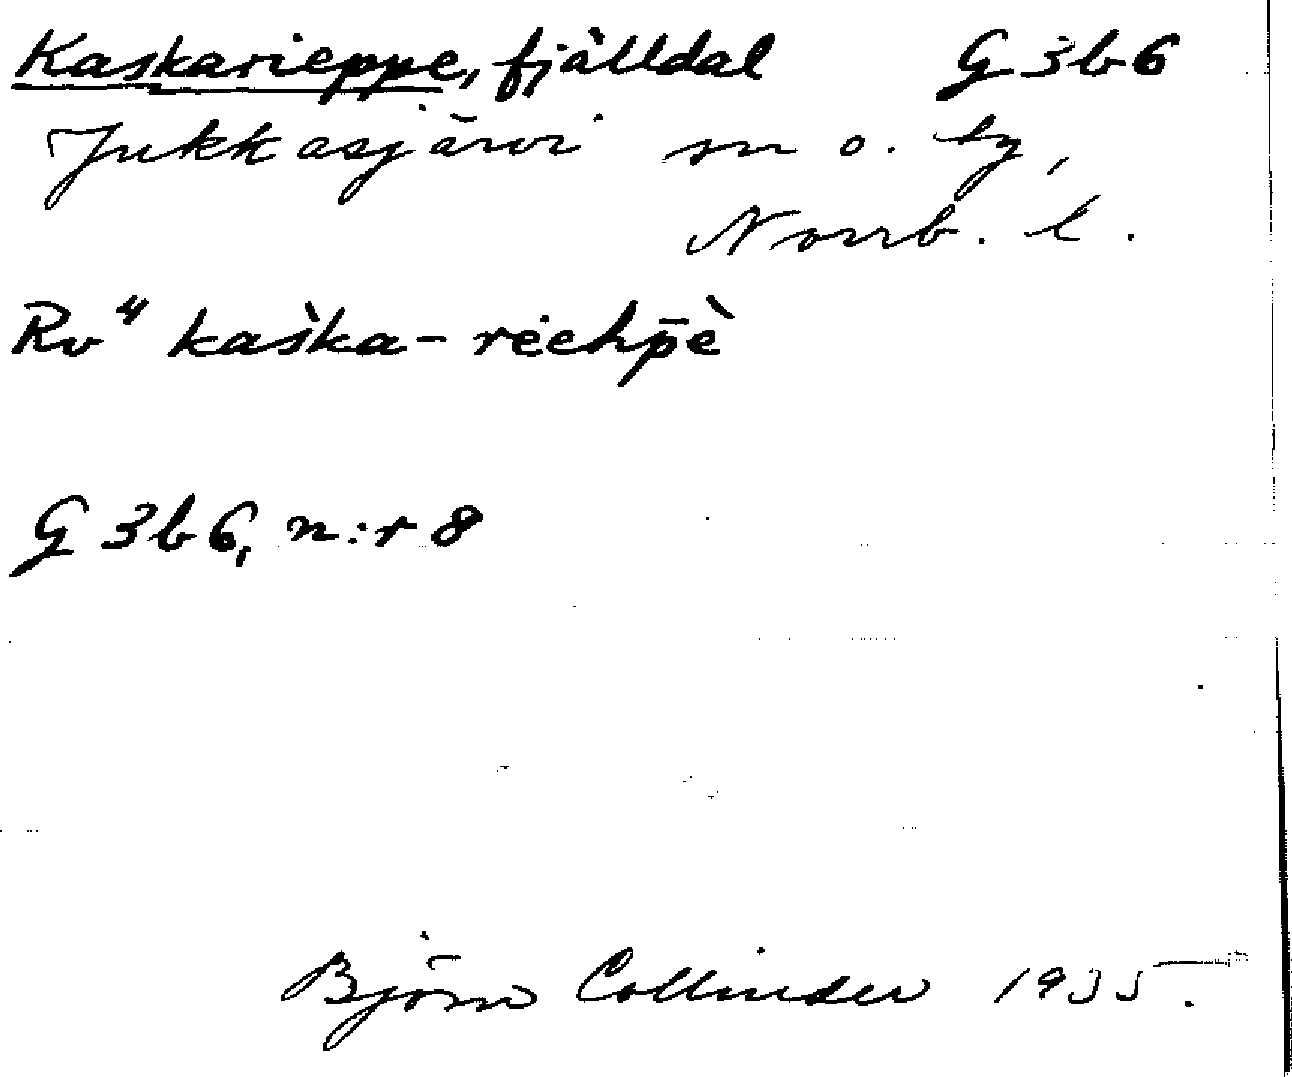 Kaskarieppe, fjälldal G 3b6
Jukkasjärvi sn o. tg,
Norrb. l.
Rv" kaška-riehp̄è
G 3b6, n:r 8
Björn Collinder 1935.